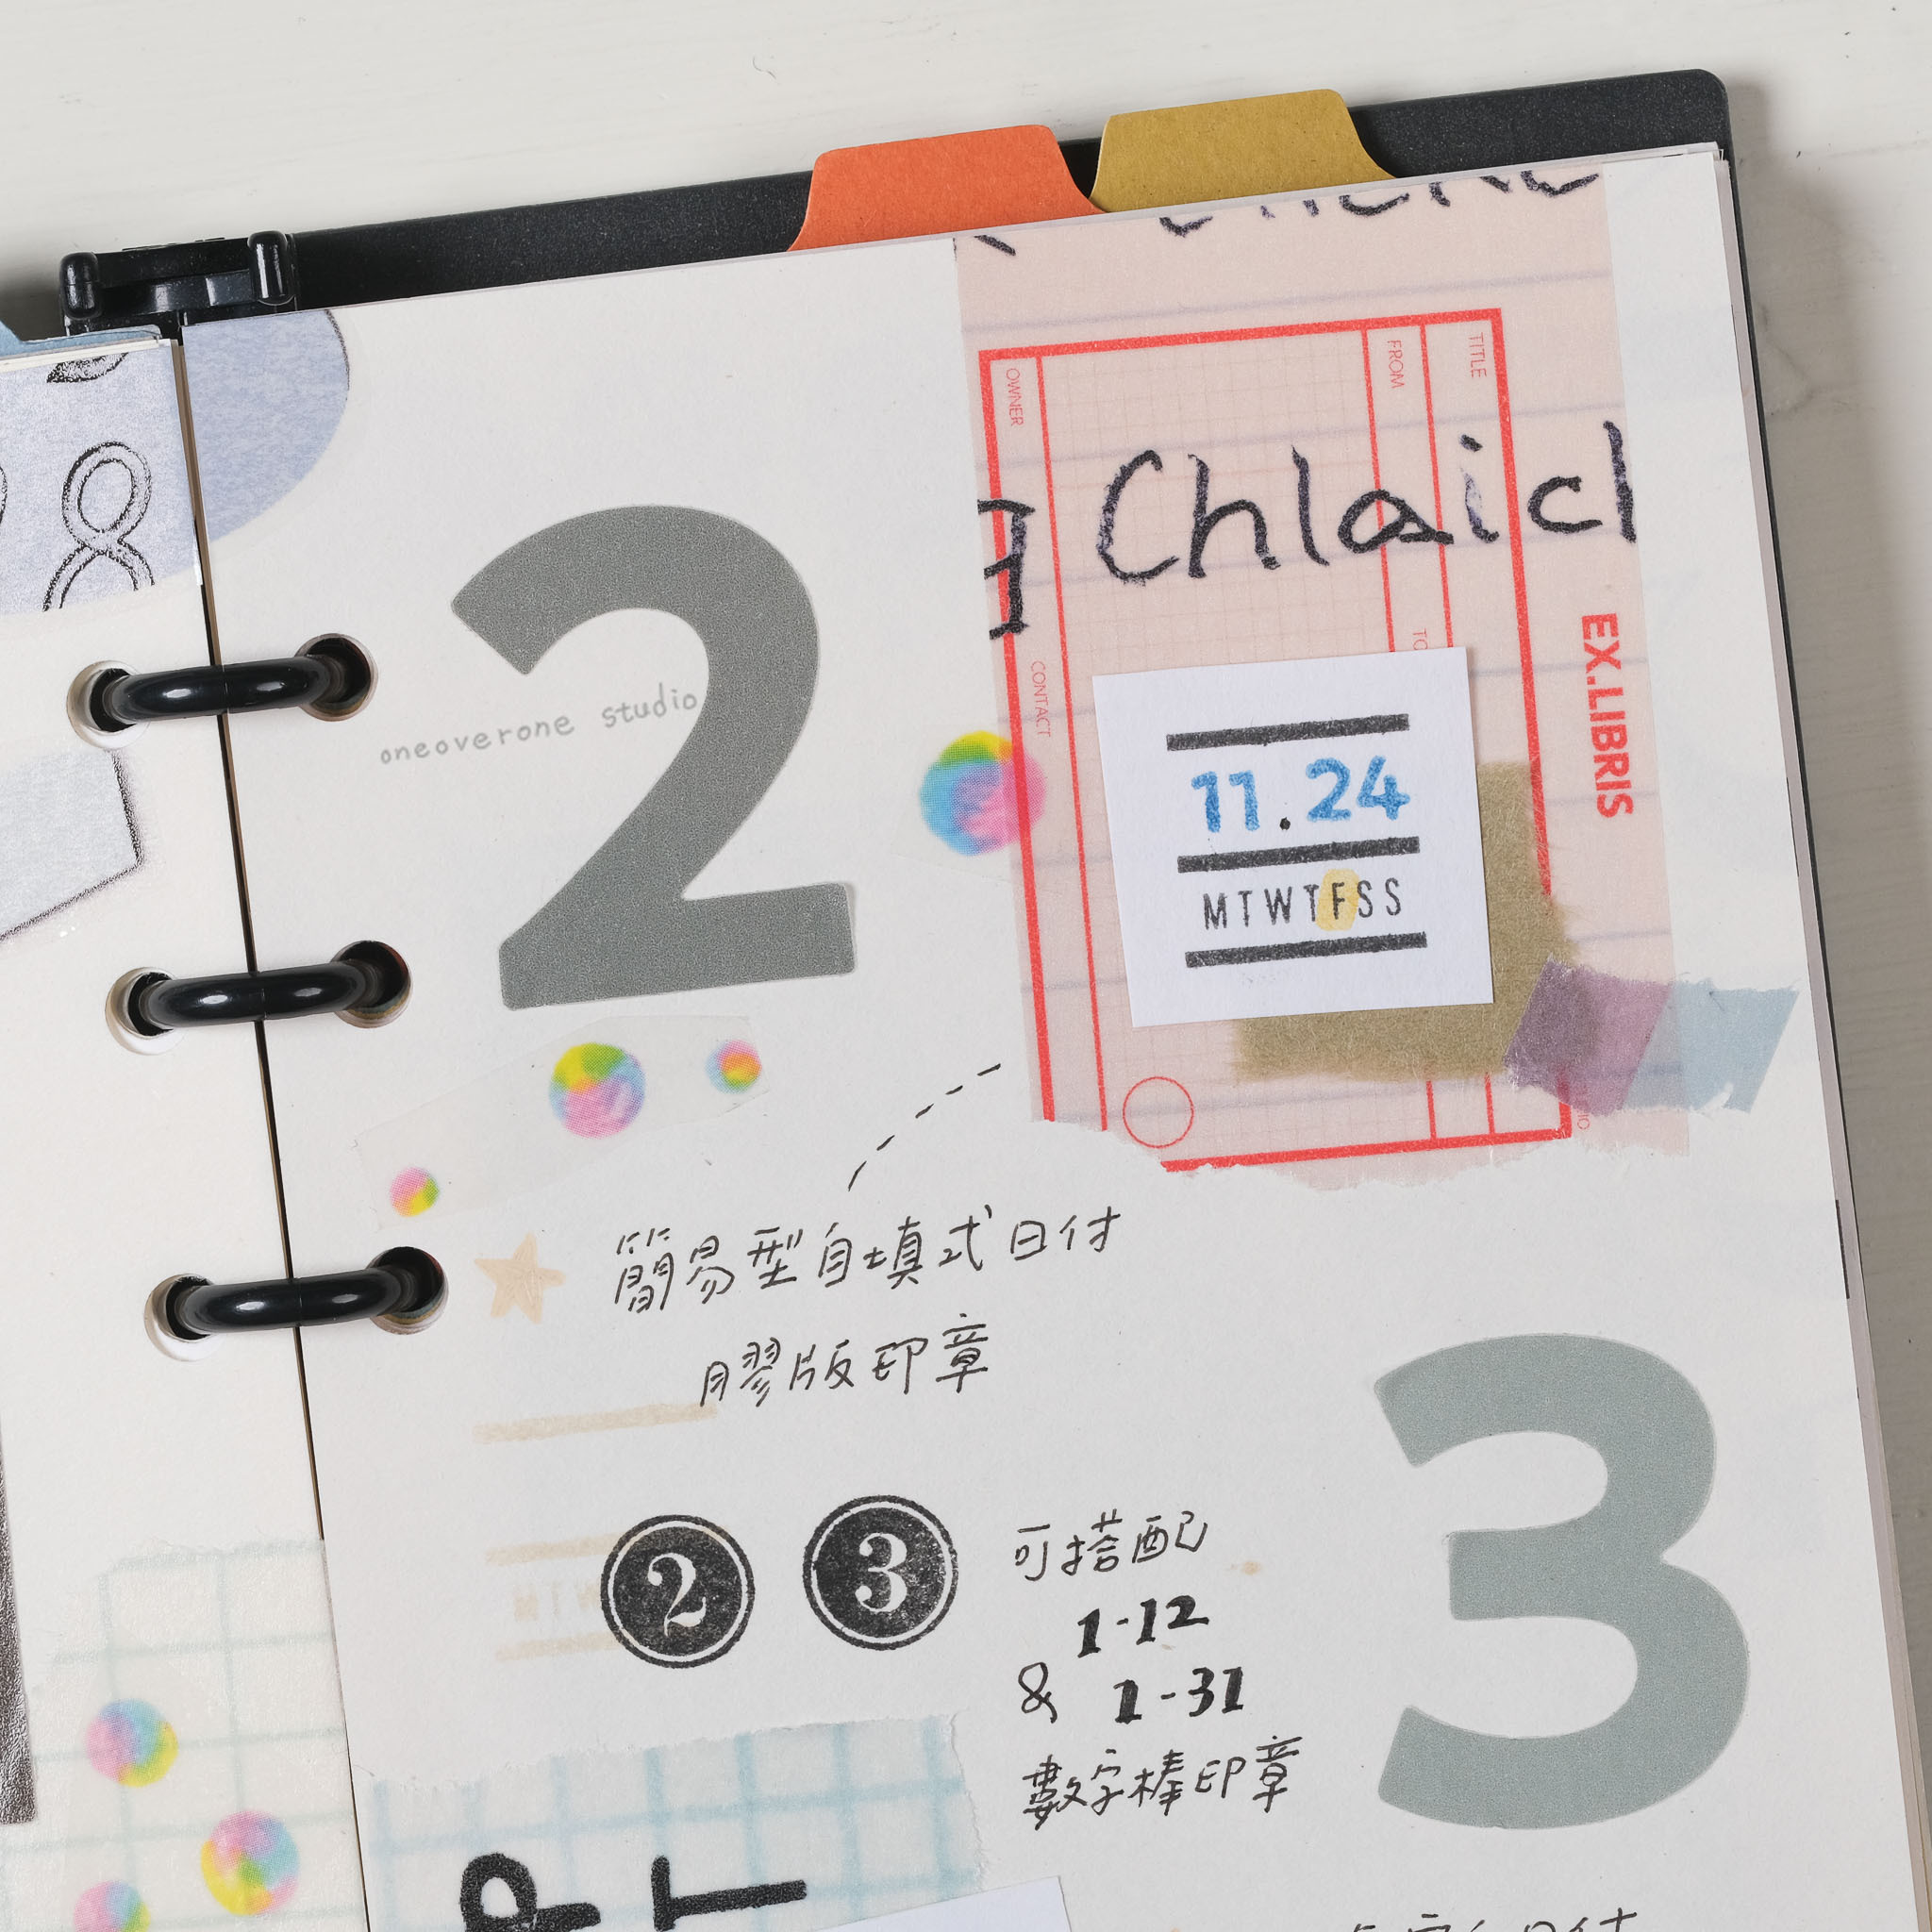 8
2
oneoverone studio
TITLE
FROM
OWNER
Chlaich
TO
CONTACT
EX.LIBRIS
11.24
MTWTFSS
簡易型自填式日付
膠版印章
2 3
可搭配
1-12
& 1-31
數字棒印章
3
P T